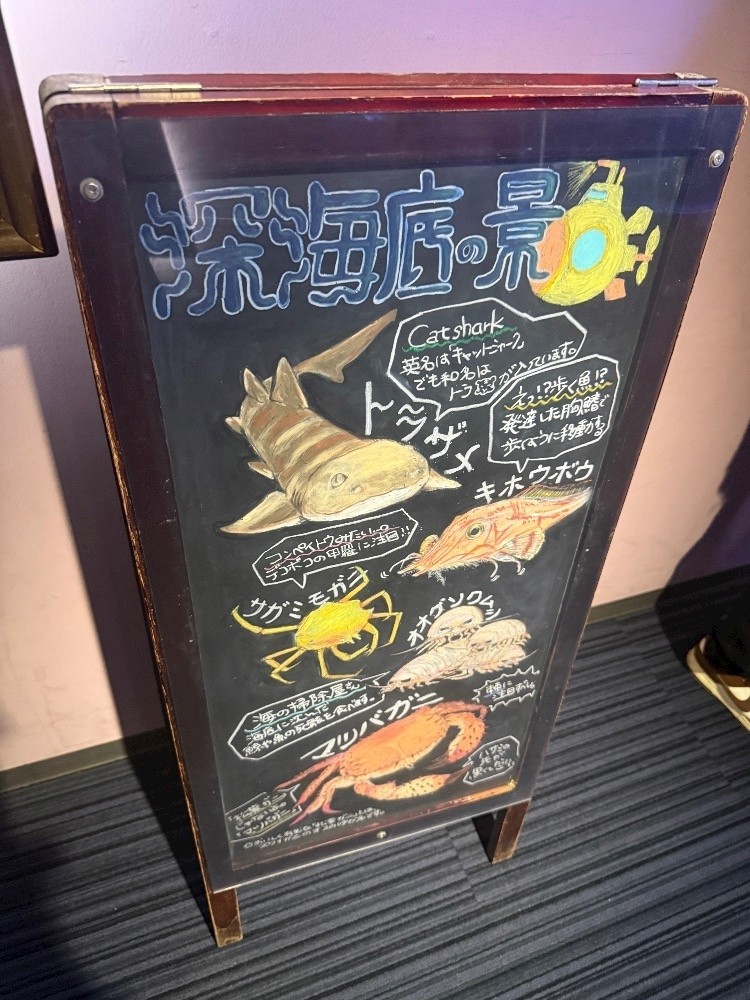 深海底の景
Catshark
英名は「キャットシャーク」
でも和名は
トラ
が入っています。
トラザメ
えっ!?歩く魚!?
発達した胸鰭で
歩くように移動する
キホウボウ
コンペイトウみたいな
デコボコの甲羅に注目!!
サガミモガニ
オオグソクムシ
海の掃除屋さん
海底に沈んだ
鯨や魚の死骸を食べます。
マツバガニ
ハサミの
先が
黒くも
マツバガニ